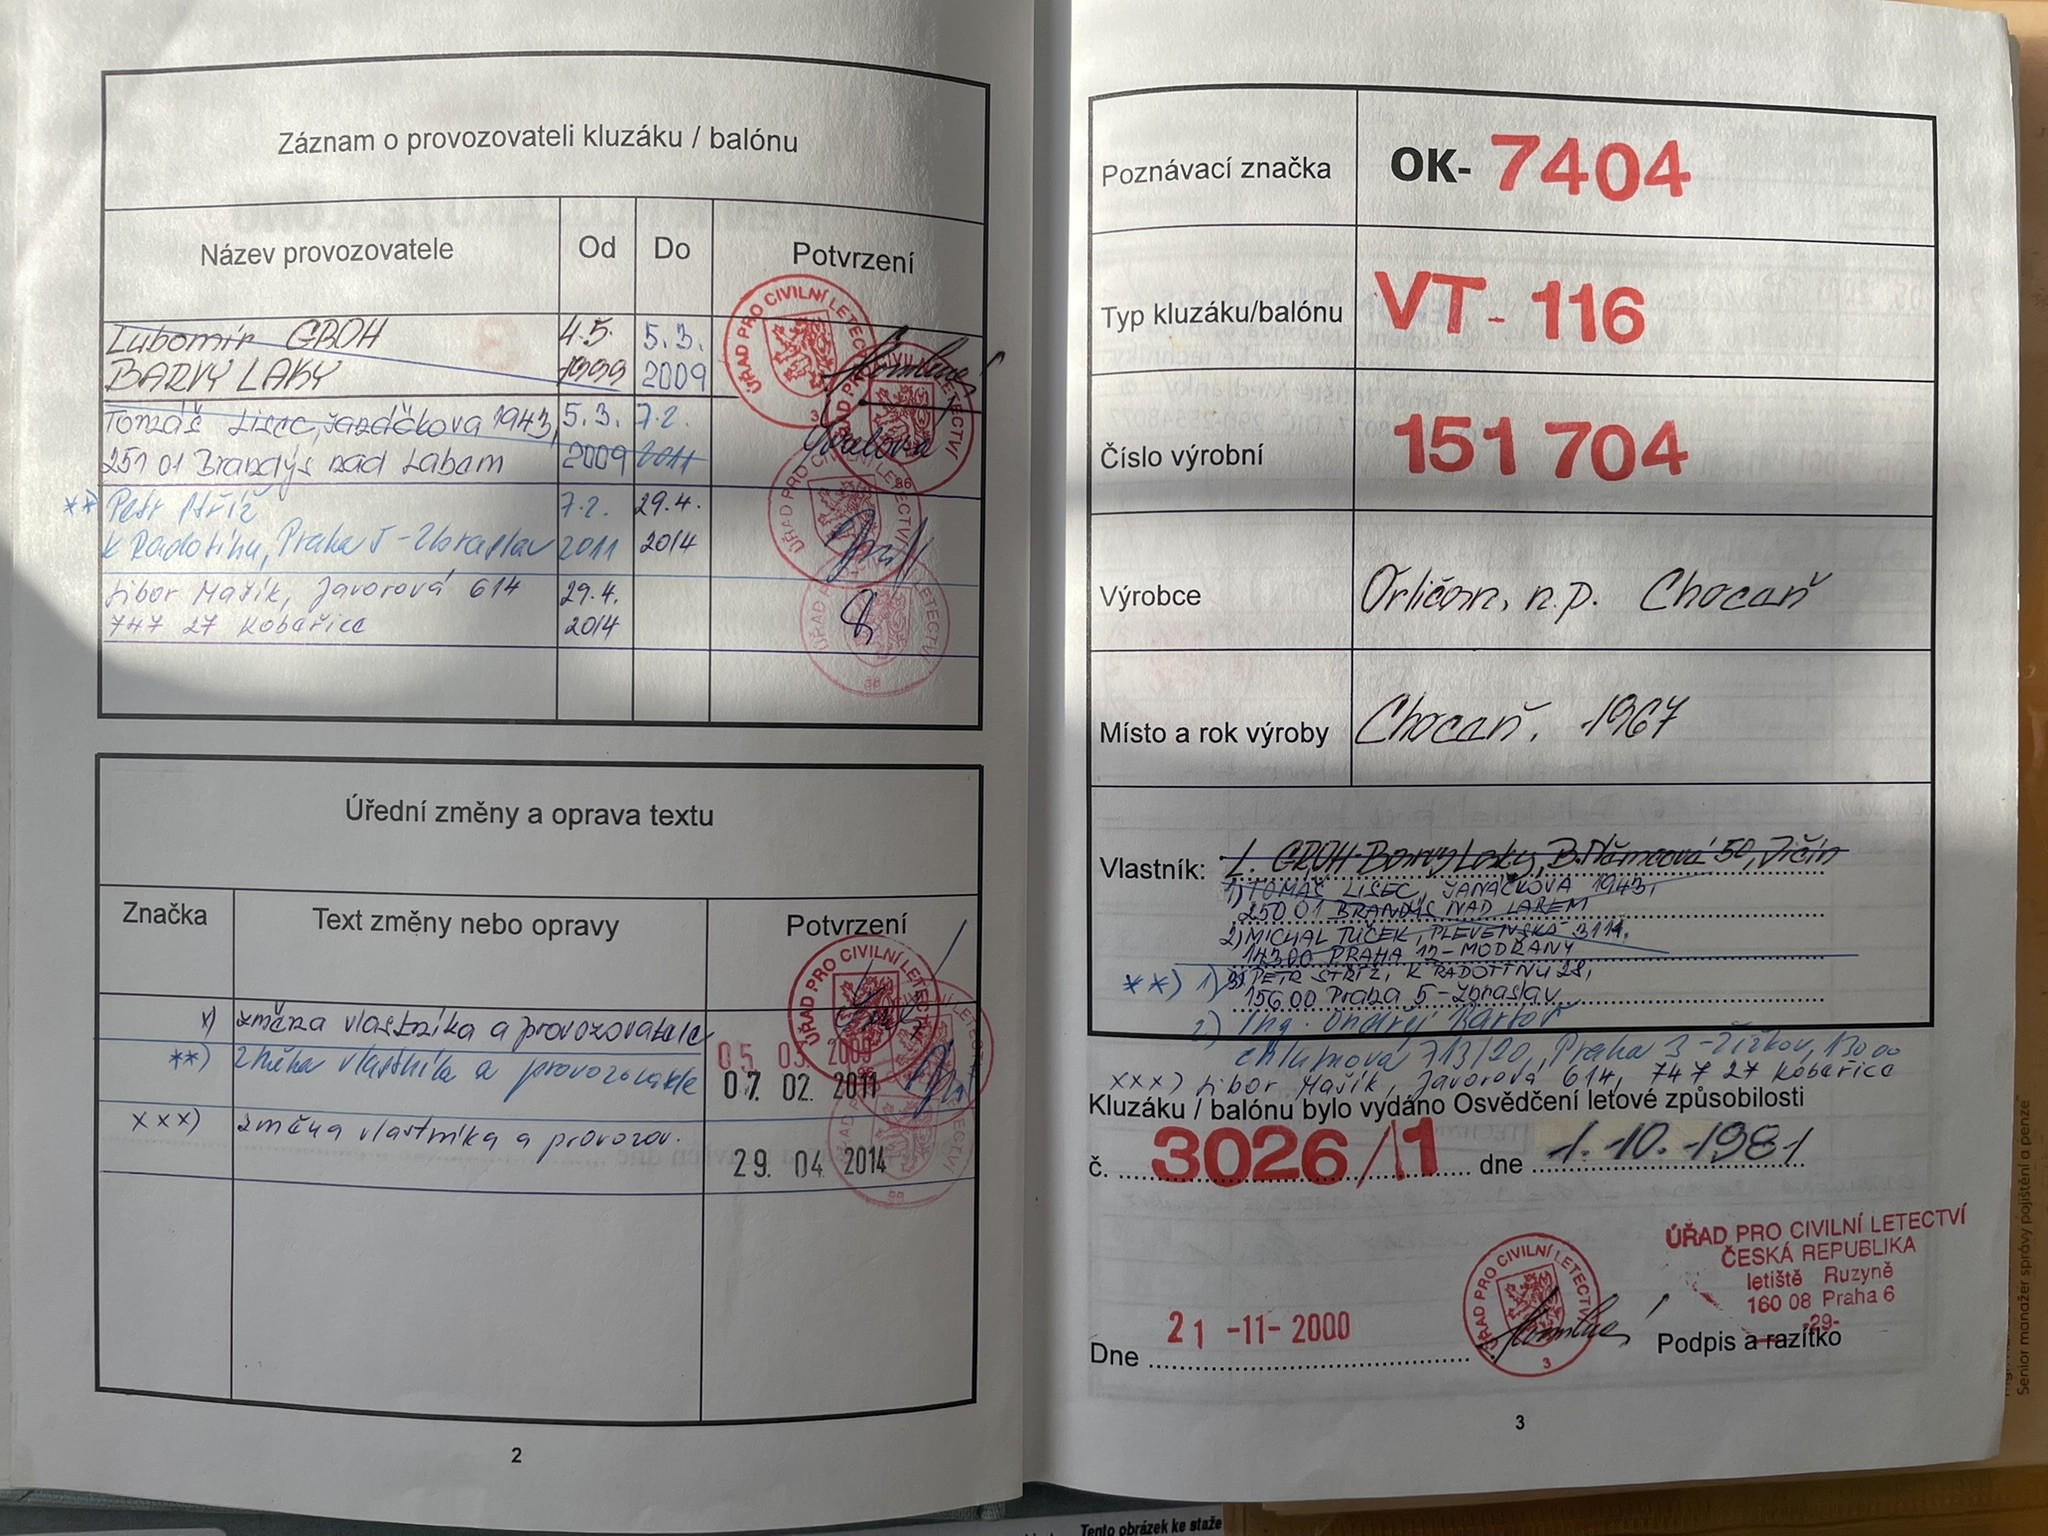 Záznam o provozovateli kluzáku / balónu
Název provozovatele Od Do Potvrzení
Lubomír GROH 4.5. 5.3.
BARVY LAKY 1999 2009
Tomáš Lisec, Janáčkova 1943, 5.3. 7.2.
251 01 Brandýs nad Labem 2009 2011
**) Petr Stříž 7.2. 29.4.
K Radotínu, Praha 5-Zbraslav 2011 2014
Libor Mařík, Javorová 614 29.4.
747 27 Kobeřice 2014
ÚŘAD PRO CIVILNÍ LETECTVÍ
3
ÚŘAD PRO CIVILNÍ LETECTVÍ
86
ÚŘAD PRO CIVILNÍ LETECTVÍ
ÚŘAD PRO CIVILNÍ LETECTVÍ
Úřední změny a oprava textu
Značka Text změny nebo opravy Potvrzení
x) změna vlastníka a provozovatele 05 03. 2009
**) změna vlastníka a provozovatele 07. 02. 2011
xxx) změna vlastníka a provozov. 29. 04 2014
ÚŘAD PRO CIVILNÍ LETECTVÍ
2
Poznávací značka OK- 7404
Typ kluzáku/balónu VT- 116
Číslo výrobní 151 704
Výrobce Orličan, n.p. Choceň
Místo a rok výroby Choceň, 1967
Vlastník: L. GROH-Barvy Laky, B.Němcové 50, Jičín
1) TOMÁŠ LISEC, JANÁČKOVA 1943,
250 01 BRANDÝS NAD LABEM
2) MICHAL TUČEK, PLEVENSKÁ 3114,
14300 PRAHA 12-MODŘANY
**) 1) PETR STŘÍŽ, K RADOTÍNU 28,
156 00 Praha 5-Zbraslav
2) Ing. Ondřej Bártov
Chlumova 713/20, Praha 3-Žižkov, 130 00
xxx) Libor Mařík, Javorová 614, 747 27 Kobeřice
Kluzáku / balónu bylo vydáno Osvědčení letové způsobilosti
č. 3026/1 dne 1.10.1981
ÚŘAD PRO CIVILNÍ LETECTVÍ
ČESKÁ REPUBLIKA
letiště Ruzyně
160 08 Praha 6
-29-
ÚŘAD PRO CIVILNÍ LETECTVÍ
3
Dne 21 -11- 2000 Podpis a razítko
3
Senior manažer správy pojištění a penze
Tento obrázek ke staže